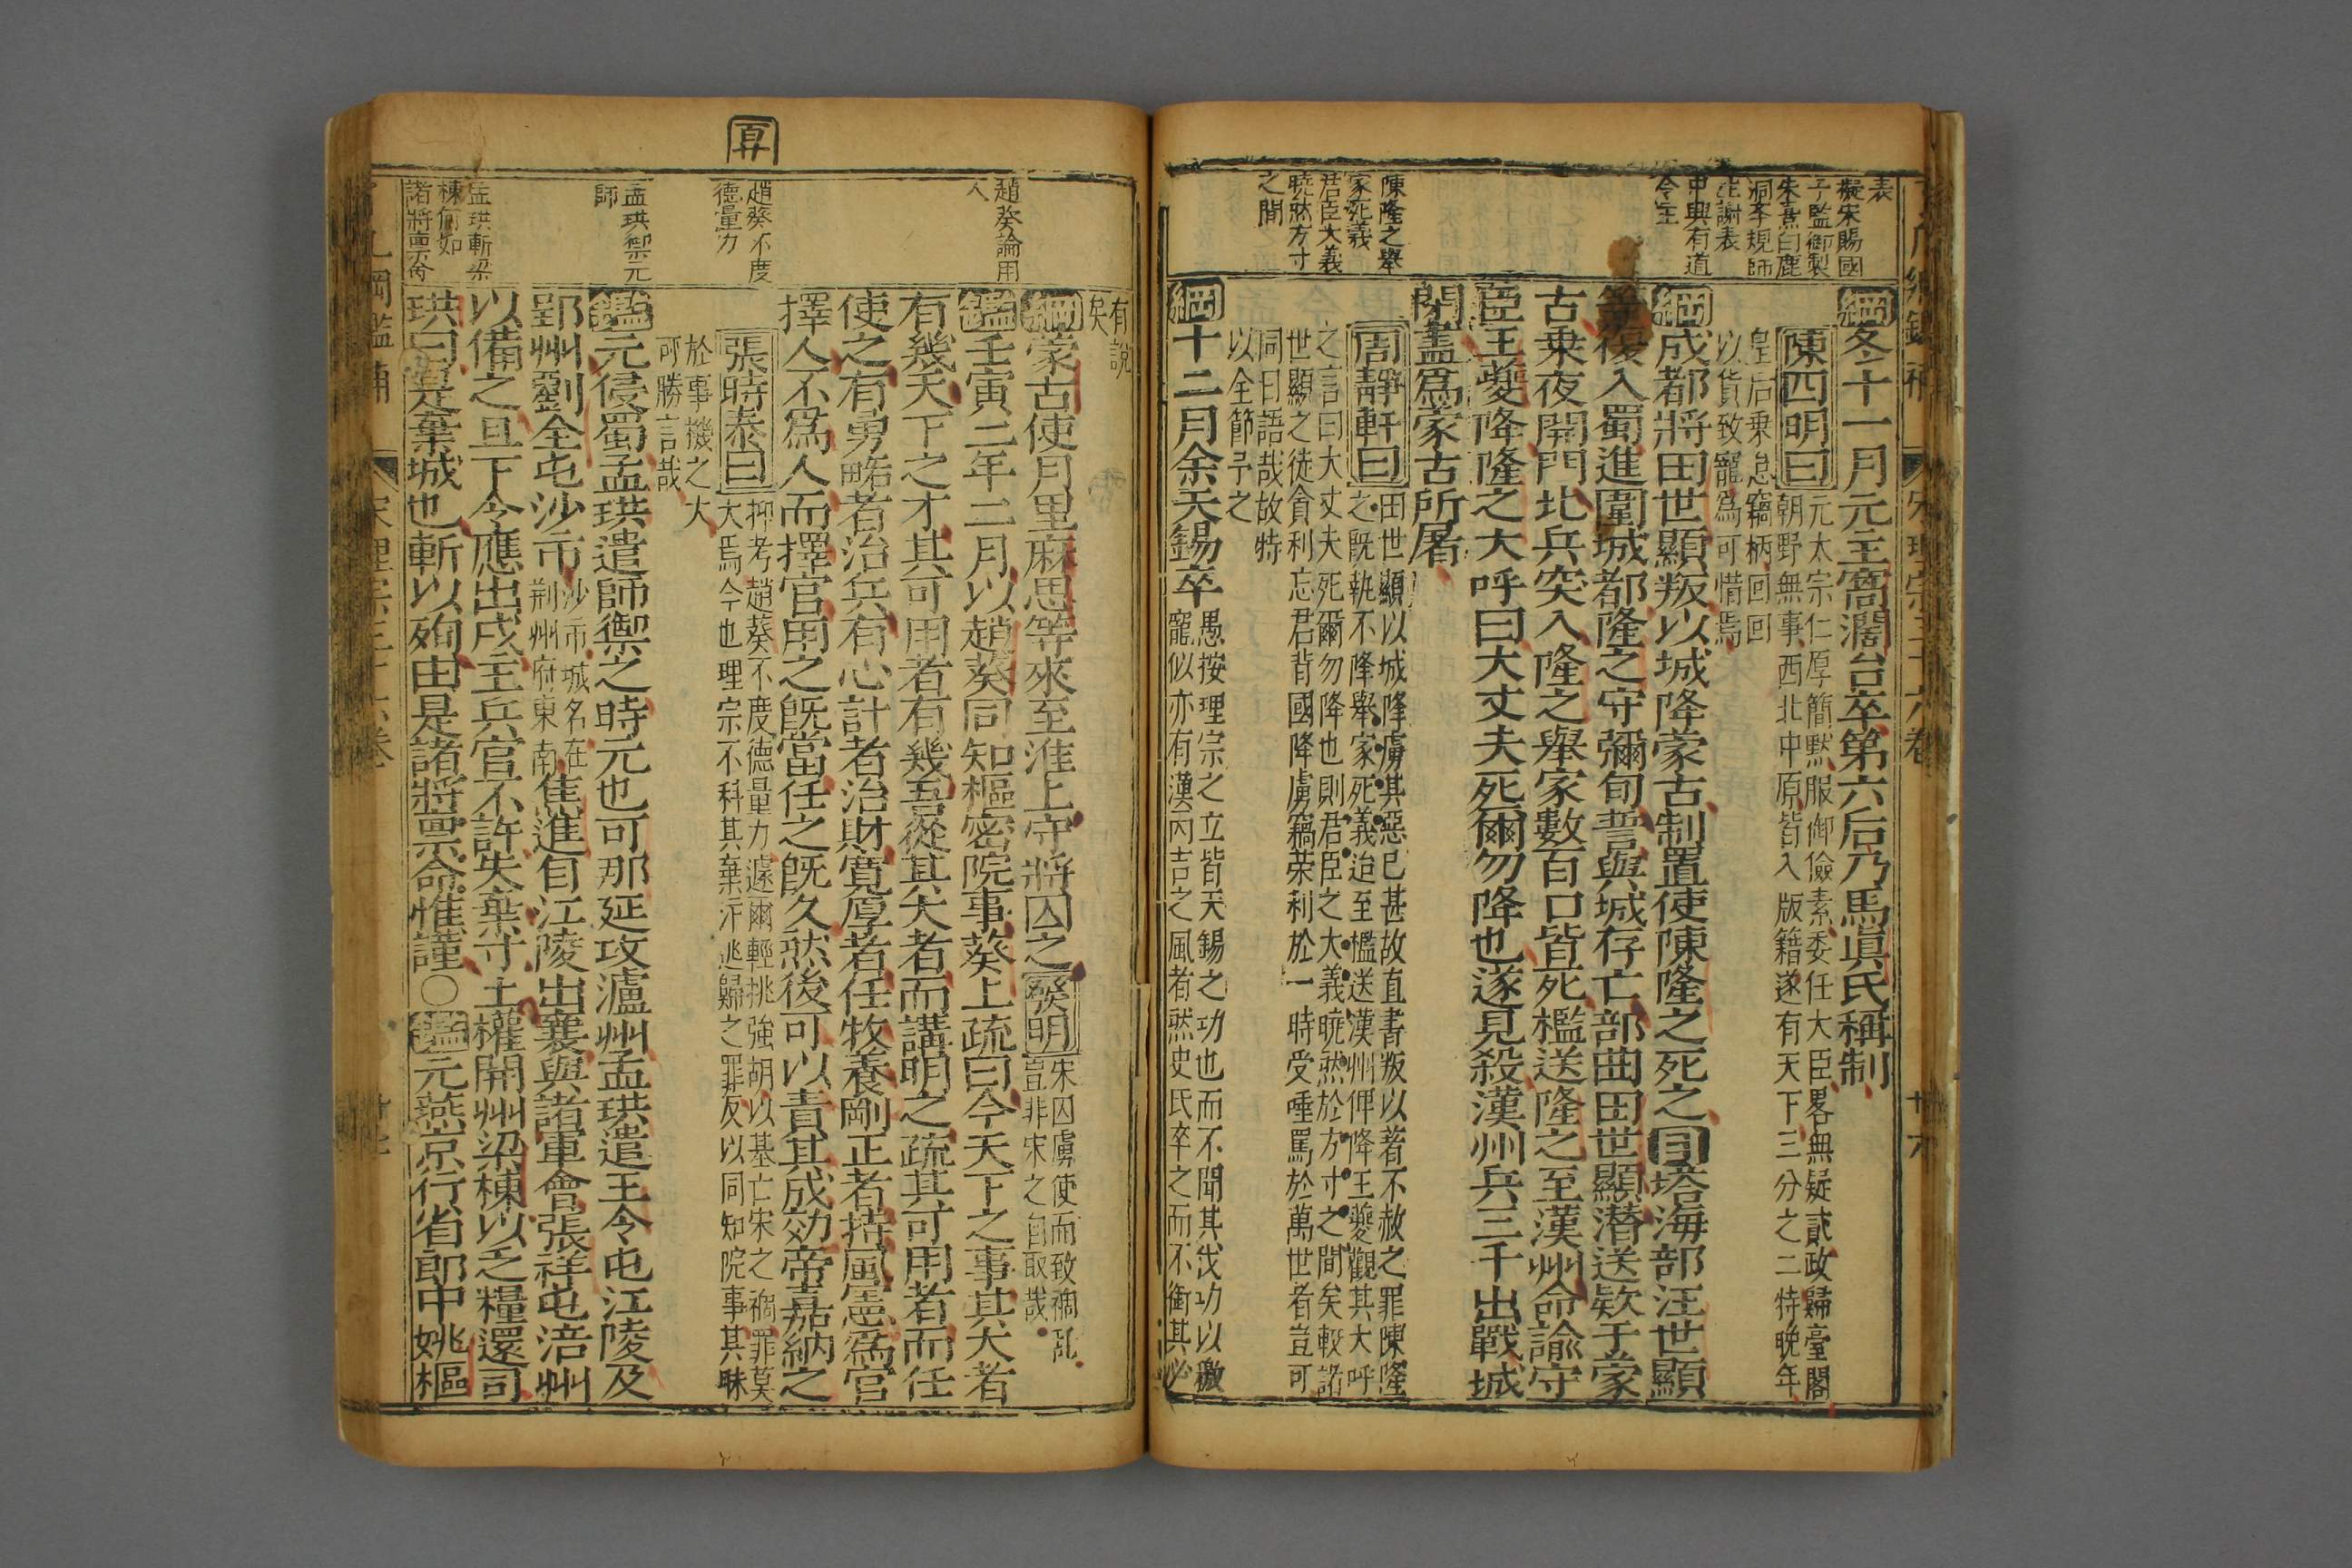 表
擬宋賜國
子監御製
朱熹白鹿
洞李規師
生謝表
中興有道
令主
陳隆之舉
家死義
君臣大義
曉然方寸
之間
綱冬十一月元主窩濶台卒第六后乃馬眞氏稱制
陳四明曰元太宗仁厚簡默服御儉素委任大臣畧無疑貳政歸臺閣
朝野無事西北中原皆入版籍遂有天下三分之二特晚年
皇后乗怠竊柄回回
以貨致寵爲可惜焉
綱成都將田世顯叛以城降蒙古制置使陳隆之死之目塔海部汪世顯
等復入蜀進圍城都隆之守彌旬誓與城存亡部曲田世顯潜送欵于蒙
古乗夜開門北兵突入隆之舉家數百口皆死檻送隆之至漢州命諭守
臣王夔降隆之大呼曰大丈夫死爾勿降也遂見殺漢州兵三千出戰城
閉盡爲蒙古所屠
周靜軒曰田世顯以城降虜其惡已甚故直書叛以著不赦之罪陳隆
之既執不降舉家死義迨至檻送漢州俾降王夔觀其大呼
之言曰大丈夫死爾勿降也則君臣之大義曉然於方寸之間矣較諸
世顯之徒貪利忘君背國降虜竊荣利於一時受唾罵於萬世者豈可
同日語哉故特
以全節予之
綱十二月余天錫卒愚按理宗之立皆天錫之功也而不聞其伐功以徼
寵似亦有漢丙吉之風者然史氏卒之而不衝其必
有說
矣
趙葵論用
人
趙葵不度
德量力
孟珙禦元
師
孟珙斬梁
棟何如
諸將禀令
綱蒙古使月里麻思等來至淮上守將囚之發明宋囚虜使而致禍乱
豈非宋之自取哉
鑑壬寅二年二月以趙葵同知樞密院事葵上疏曰今天下之事其大者
有幾天下之才其可用者有幾吾從其大者而講明之疏其可用者而任
使之有勇略者治兵有心計者治財寬厚者任牧養剛正者持風憲爲官
擇人不爲人而擇官用之既當任之既久然後可以責其成効帝嘉納之
張時泰曰抑考趙葵不度德量力遽爾輕挑強胡以基亡宋之禍罪莫
大焉今也理宗不科其棄汴逃歸之罪反以同知院事其昧
於事機之大
可勝言哉
鑑元侵蜀孟珙遣師禦之時元也可那延攻瀘州孟珙遣王令屯江陵及
郢州劉全屯沙市沙市城名在荆州府東南焦進自江陵出襄與諸軍會張祥屯涪州
以備之且下令應出戍主兵官不許失棄寸土權開州梁棟以乏糧還司
珙曰是棄城也斬以殉由是諸將禀命惟謹○鑑元燕京行省郎中姚樞